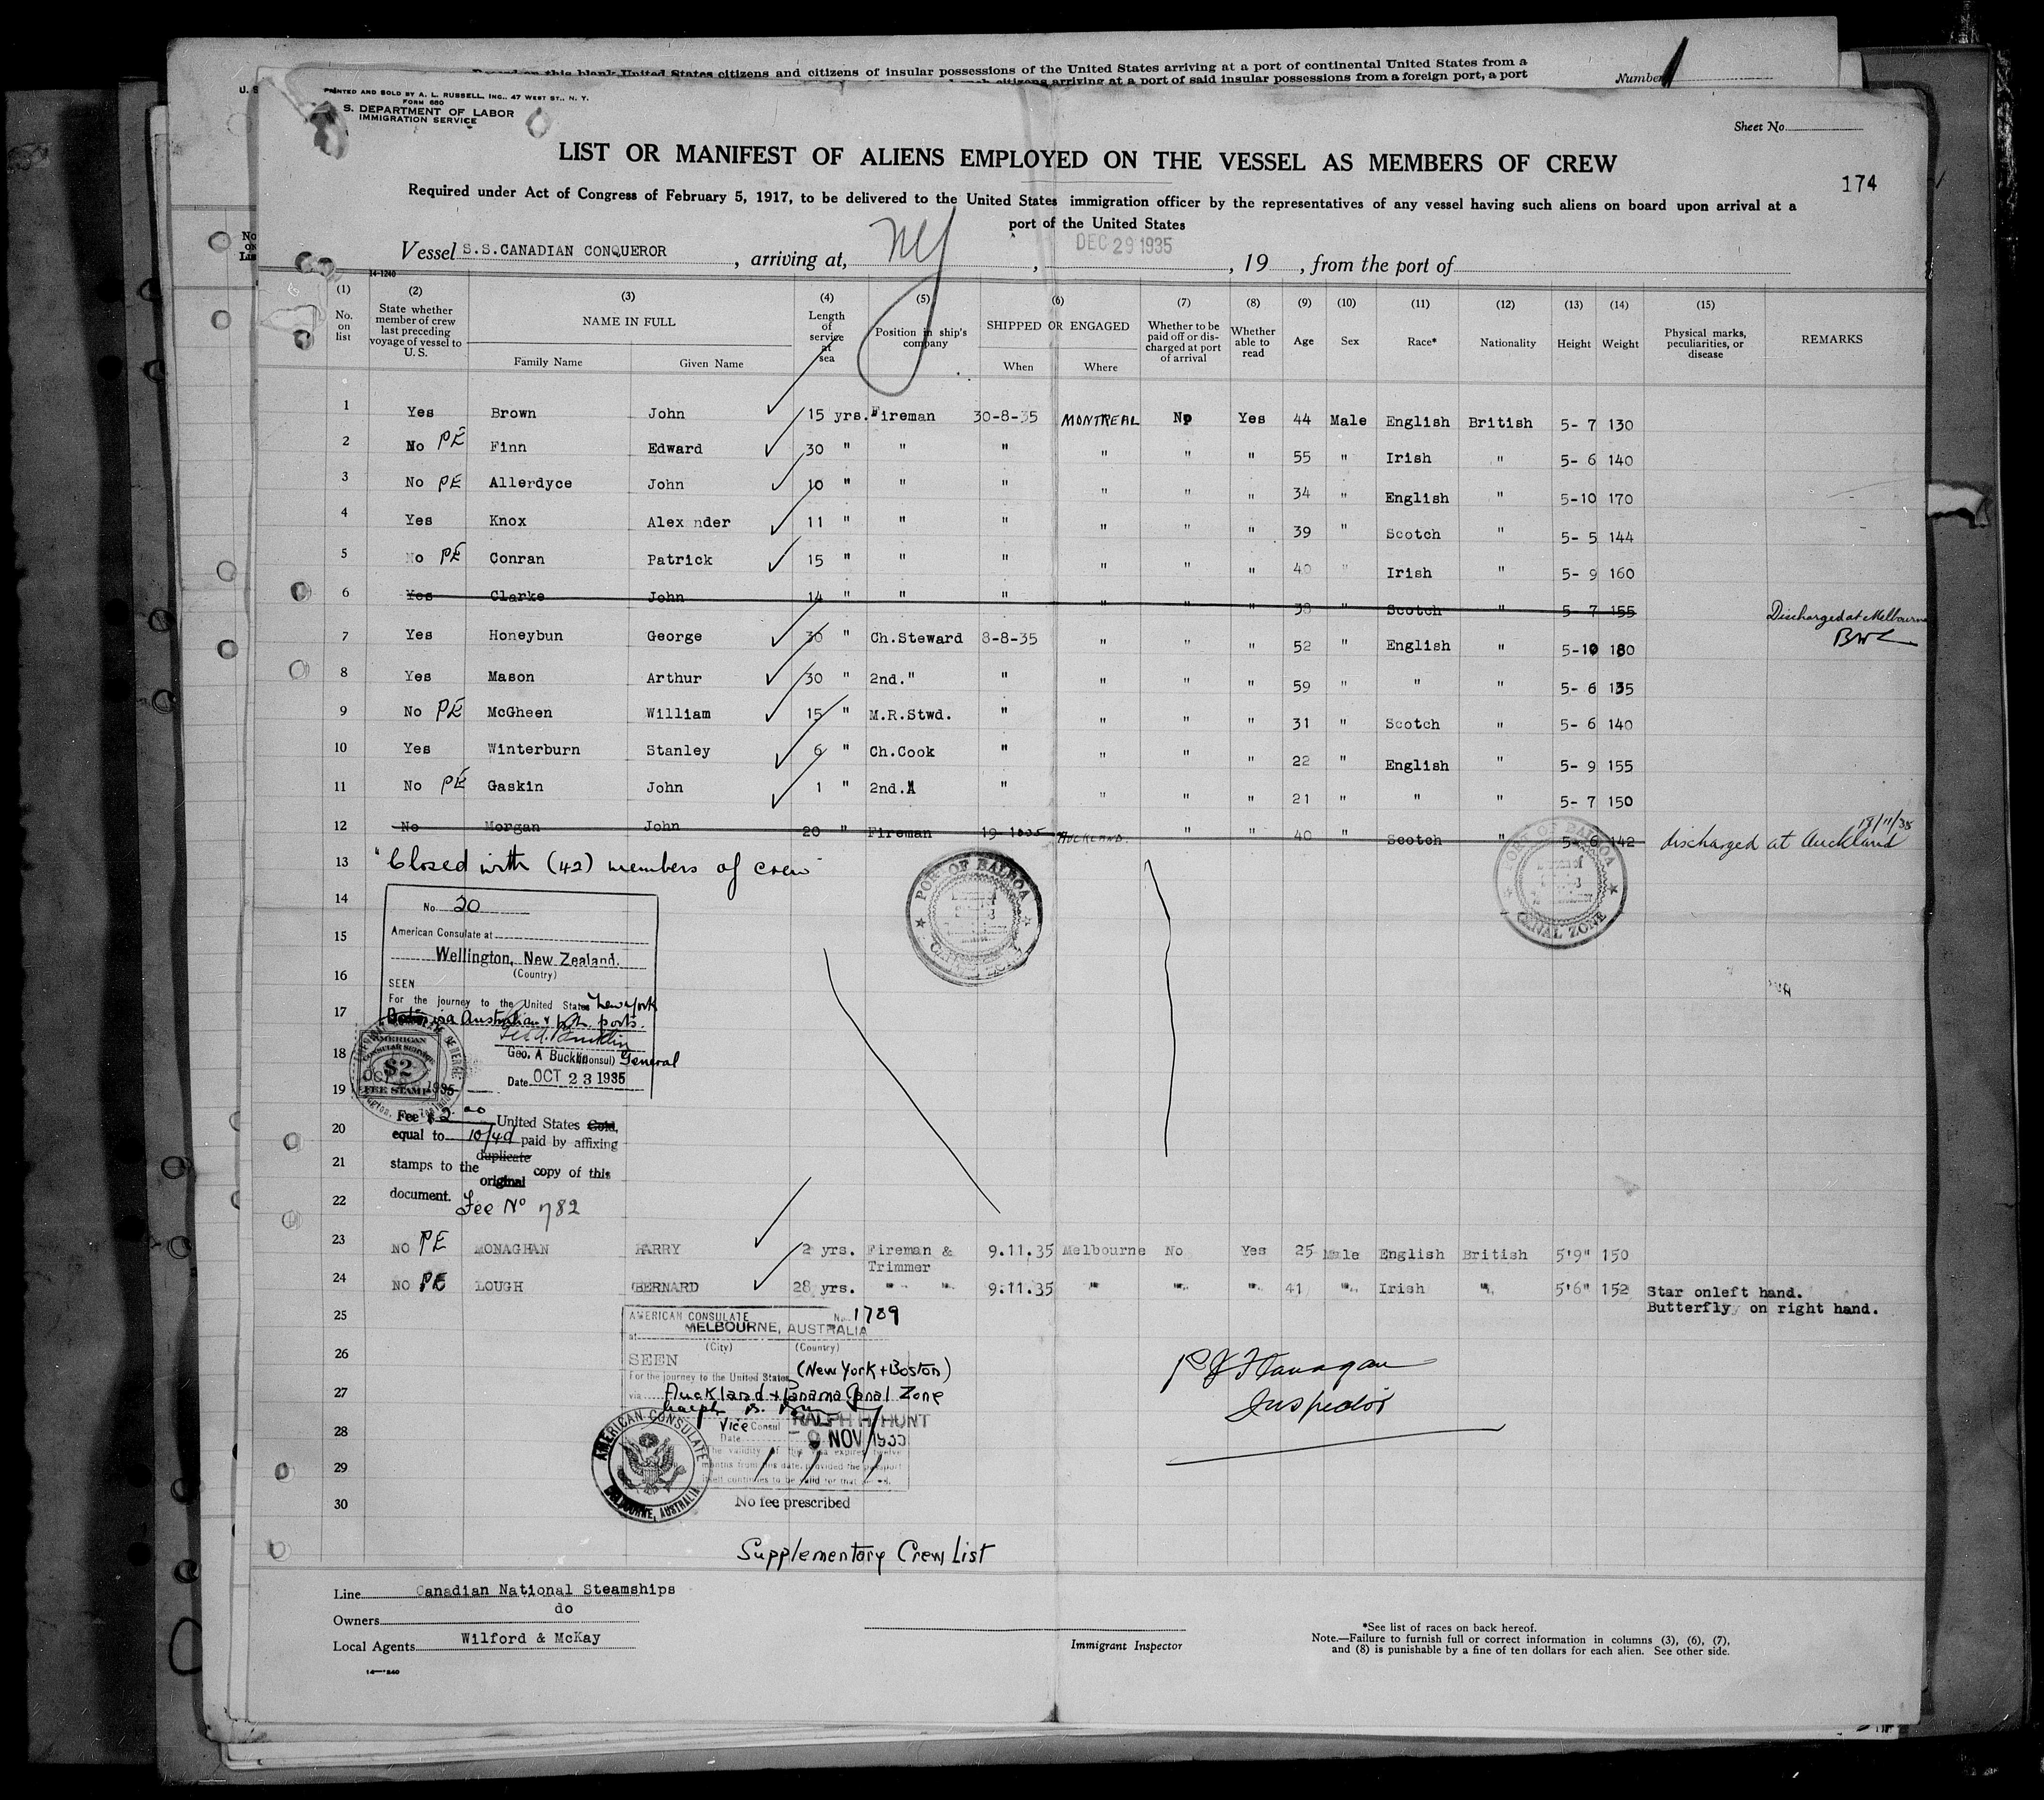 Based on this blank United States citizens and citizens of insular possessions of the United States arriving at a port of continental United States from a
citizens arriving at a port of said insular possessions from a foreign port, a port
Number 1
PRINTED AND SOLD BY A. L. RUSSELL, INC., 47 WEST ST., N. Y.
FORM 680
S. DEPARTMENT OF LABOR
IMMIGRATION SERVICE
Sheet No.
LIST OR MANIFEST OF ALIENS EMPLOYED ON THE VESSEL AS MEMBERS OF CREW
174
Required under Act of Congress of February 5, 1917, to be delivered to the United States immigration officer by the representatives of any vessel having such aliens on board upon arrival at a
port of the United States
Vessel S.S.CANADIAN CONQUEROR, arriving at, NY, DEC 29 1935, 19 , from the port of
14-1240
(1) No. on list
(2) State whether member of crew last preceding voyage of vessel to U. S.
(3) NAME IN FULL Family Name Given Name
(4) Length of service at sea
(5) Position in ship's company
(6) SHIPPED OR ENGAGED When Where
(7) Whether to be paid off or discharged at port of arrival
(8) Whether able to read
(9) Age
(10) Sex
(11) Race*
(12) Nationality
(13) Height
(14) Weight
(15) Physical marks, peculiarities, or disease
REMARKS
1 Yes Brown John 15 yrs. Fireman 30-8-35 MONTREAL No Yes 44 Male English British 5- 7 130
2 No PE Finn Edward 30 " " " " " " 55 " Irish " 5- 6 140
3 No PE Allerdyce John 10 " " " " " " 34 " English " 5-10 170
4 Yes Knox Alex nder 11 " " " " " " 39 " Scotch " 5- 5 144
5 No PE Conran Patrick 15 " " " " " " 40 " Irish " 5- 9 160
6 Yes Clarke John 14 " " " " " " 38 " Scotch " 5- 7 155 Discharged at Melbourne
7 Yes Honeybun George 30 " Ch.Steward 8-8-35 " " " 52 " English " 5-10 180 BWL
8 Yes Mason Arthur 30 " 2nd." " " " " 59 " " " 5- 6 135
9 No PE McGheen William 15 " M.R.Stwd. " " " " 31 " Scotch " 5- 6 140
10 Yes Winterburn Stanley 6 " Ch.Cook " " " " 22 " English " 5- 9 155
11 No PE Gaskin John 1 " 2nd." " " " " 21 " " " 5- 7 150
12 No Morgan John 20 " Fireman 19- 1035 AUCKLAND. " " 40 " Scotch " 5- 6 142 discharged at Auckland 18/11/35
13 "Closed with (42) members of crew"
PORT OF BALBOA
CANAL ZONE
PORT OF BALBOA
CANAL ZONE
14 No. 20
15 American Consulate at
Wellington, New Zealand.
16 (Country)
SEEN
For the journey to the United States New York
17 via Australian & ports.
18 Geo, A Bucklin (Consul) General
AMERICAN CONSULAR SERVICE $2 FEE STAMP
19 Date OCT 23 1935
Fee $ 2.00 United States Gold,
20 equal to 10/4d paid by affixing
duplicate
21 stamps to the original copy of this
22 document. Fee No 782
23 NO PE MONAGHAN HARRY 2 yrs. Fireman & Trimmer 9.11.35 Melbourne No Yes 25 Male English British 5'9" 150
24 NO PE LOUGH BERNARD 28 yrs. " " 9.11.35 " " " 41 " Irish " 5'6" 152 Star onleft hand.
Butterfly on right hand.
25 AMERICAN CONSULATE No. 1789
at MELBOURNE, AUSTRALIA
26 (City) (Country)
SEEN
(New York + Boston)
For the journey to the United States
27 via Auckland + Panama Canal Zone
RALPH H HUNT
28 Vice Consul
Date 9 NOV 1935
The validity of this visa expires twelve
29 months from this date, provided the passport
itself continues to be valid for that
AMERICAN CONSULATE
MELBOURNE, AUSTRALIA
30 No fee prescribed
P J Flanagan
Inspector
Supplementary Crew List
Line Canadian National Steamships
Owners do
Local Agents Wilford & McKay
14—1240
Immigrant Inspector
*See list of races on back hereof.
Note.—Failure to furnish full or correct information in columns (3), (6), (7),
and (8) is punishable by a fine of ten dollars for each alien. See other side.